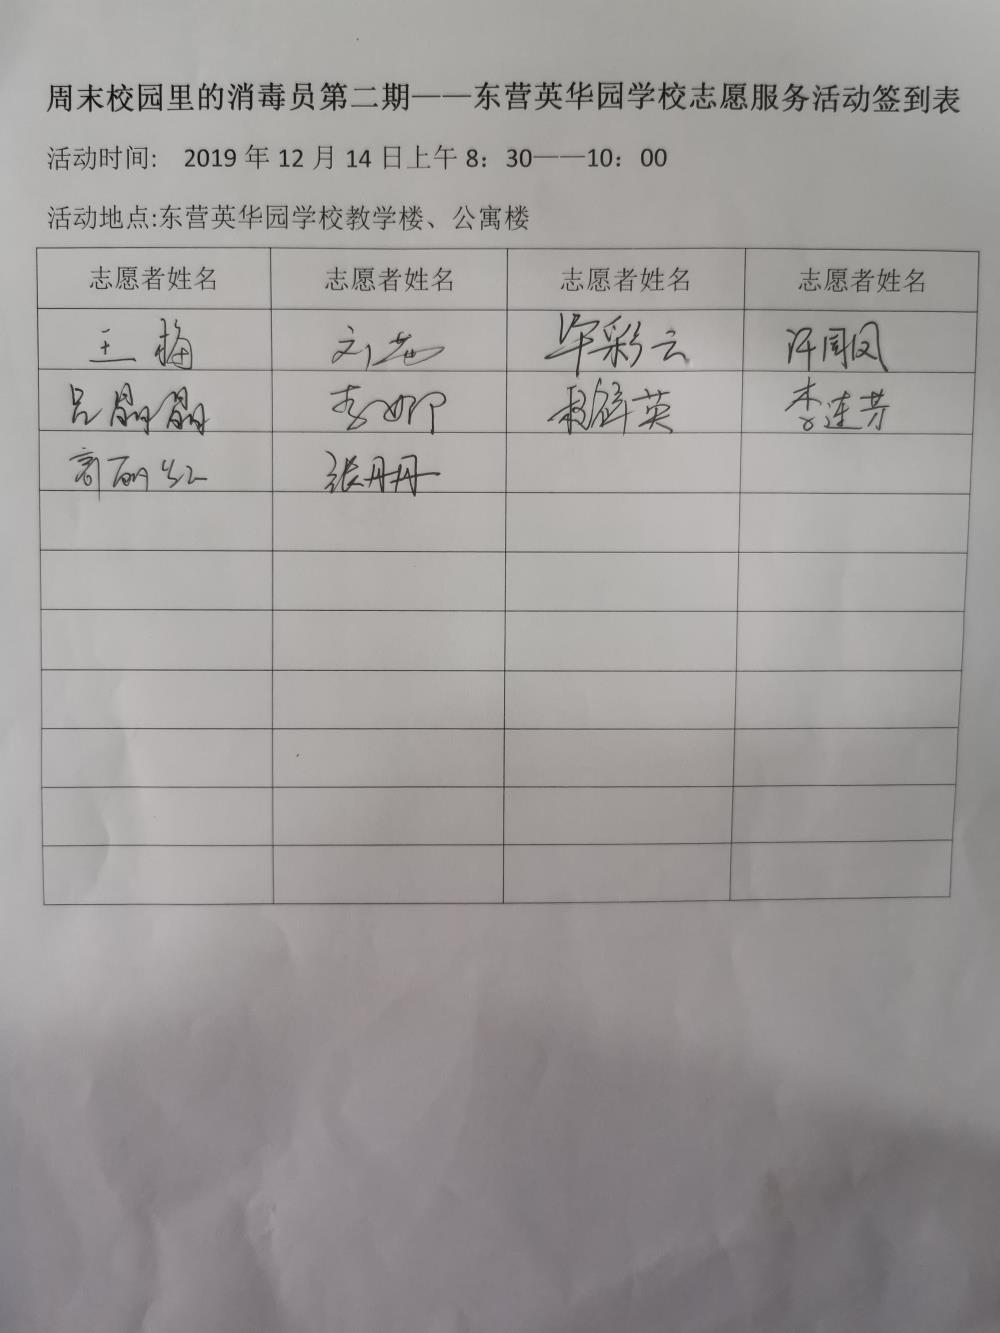 周末校园里的消毒员第二期——东营英华园学校志愿服务活动签到表
活动时间: 2019 年 12 月 14 日上午 8：30——10：00
活动地点:东营英华园学校教学楼、公寓楼
志愿者姓名 志愿者姓名 志愿者姓名 志愿者姓名
王梅 刘 毕彩云 许国凤
吕晶晶 李娜 英 李连芳
商丽红 张丹丹